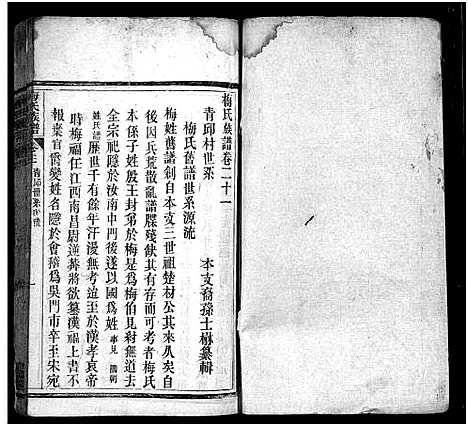 梅氏族譜卷二十一
青邱村世系
本支裔孫士楙纂輯
梅氏舊譜世系源流
梅姓舊譜創自本支三世祖楚材公其來久矣自
後因兵荒散亂譜牒殘缺其有存而可考者梅氏
本係子姓殷王封弟於梅是爲梅伯見紂無道去
全宗祀隱於汝南中門後遂以國爲姓事見
姓氏譜歷世千有餘年汗漫無考迨至於漢孝哀帝
時梅福任江西南昌尉逆莽將欲纂漢福上書不
報棄官爵變姓名隱於會稽爲吳門市卒至宋宛
梅氏族譜
青邱世系